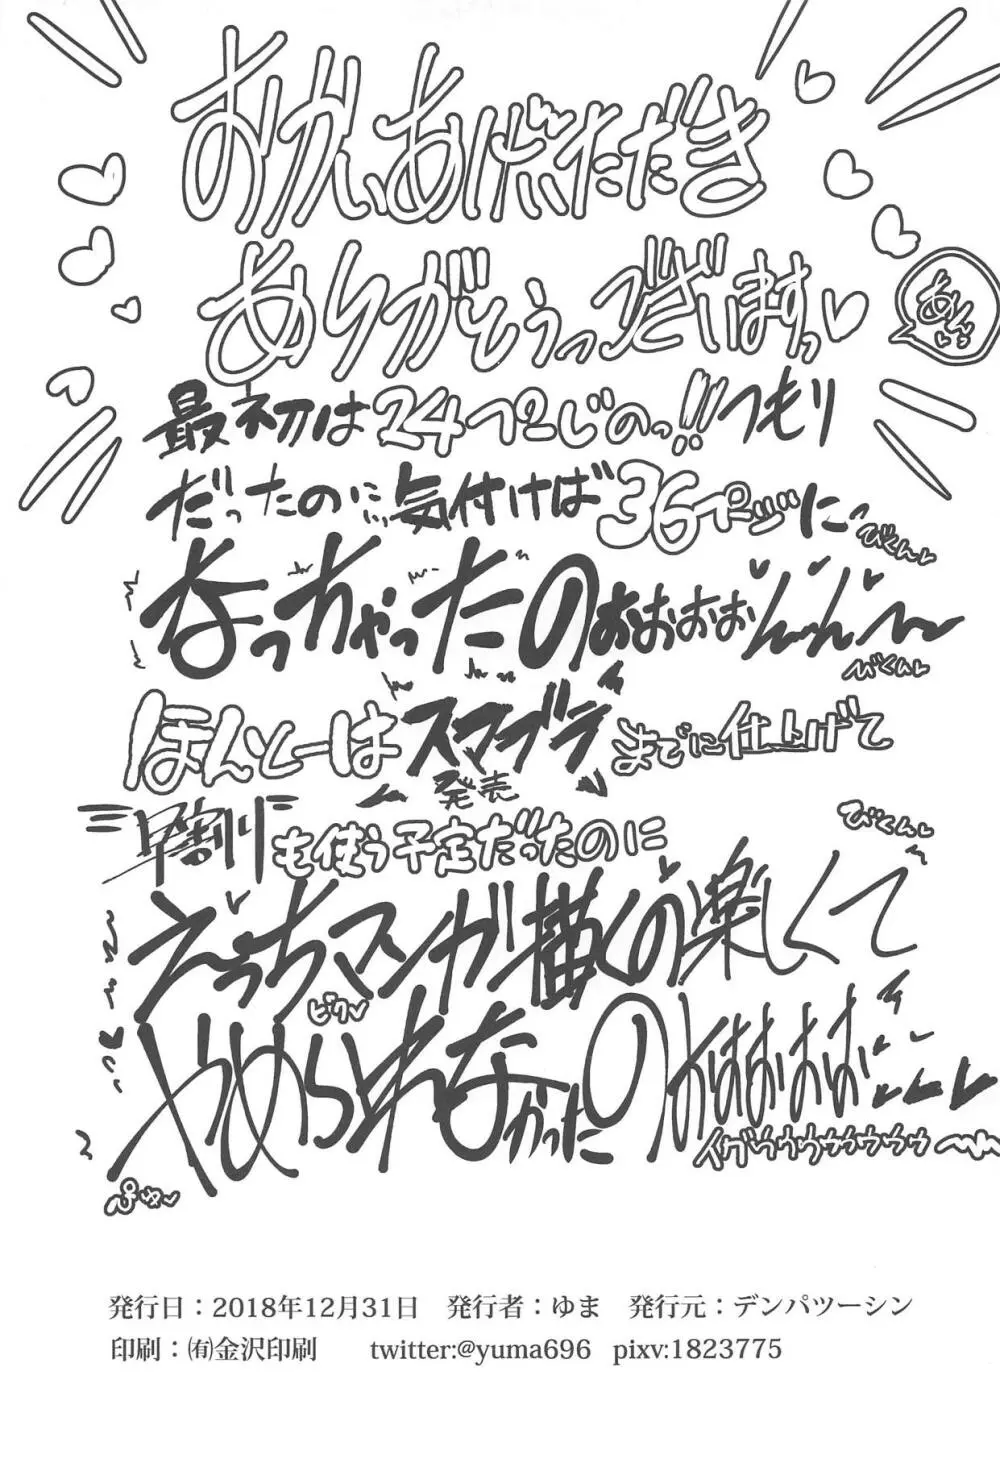 おかいあげいただき
ありがとうっございますっ♡
あんっ
最初は24ぺーじのっ!!つもり
だったのに…気付けば36ページに…
びくんっ
なっちゃったのぉおおおんんん〜
びくんっ
ほんとーはスマブラまでに仕上げて
発売
早割りも使う予定だったのに
びくんっ
えっちマンガ描くの楽しくて
ビクッ
やめられなかったのおほおおおお…
イグゥゥゥゥゥゥゥゥゥ
ぷゅっ
発行日：2018年12月31日　発行者：ゆま　発行元：デンパツーシン
印刷：㈲金沢印刷　　twitter:@yuma696　pixv:1823775